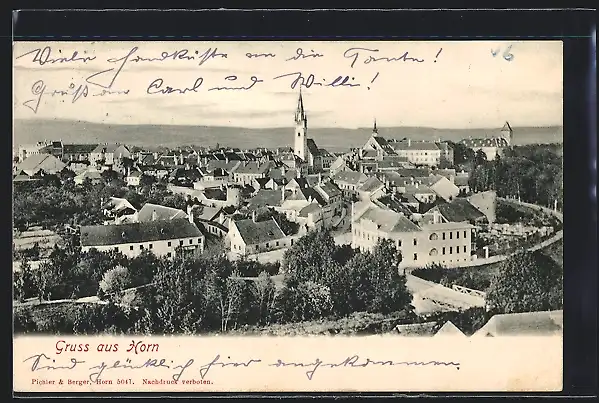 Viele Handküsse an die Tante!
Gruß an Carl und Willi!
46
Gruss aus Horn
Sind glücklich hier angekommen.
Pichler & Berger, Horn 5041. Nachdruck verboten.